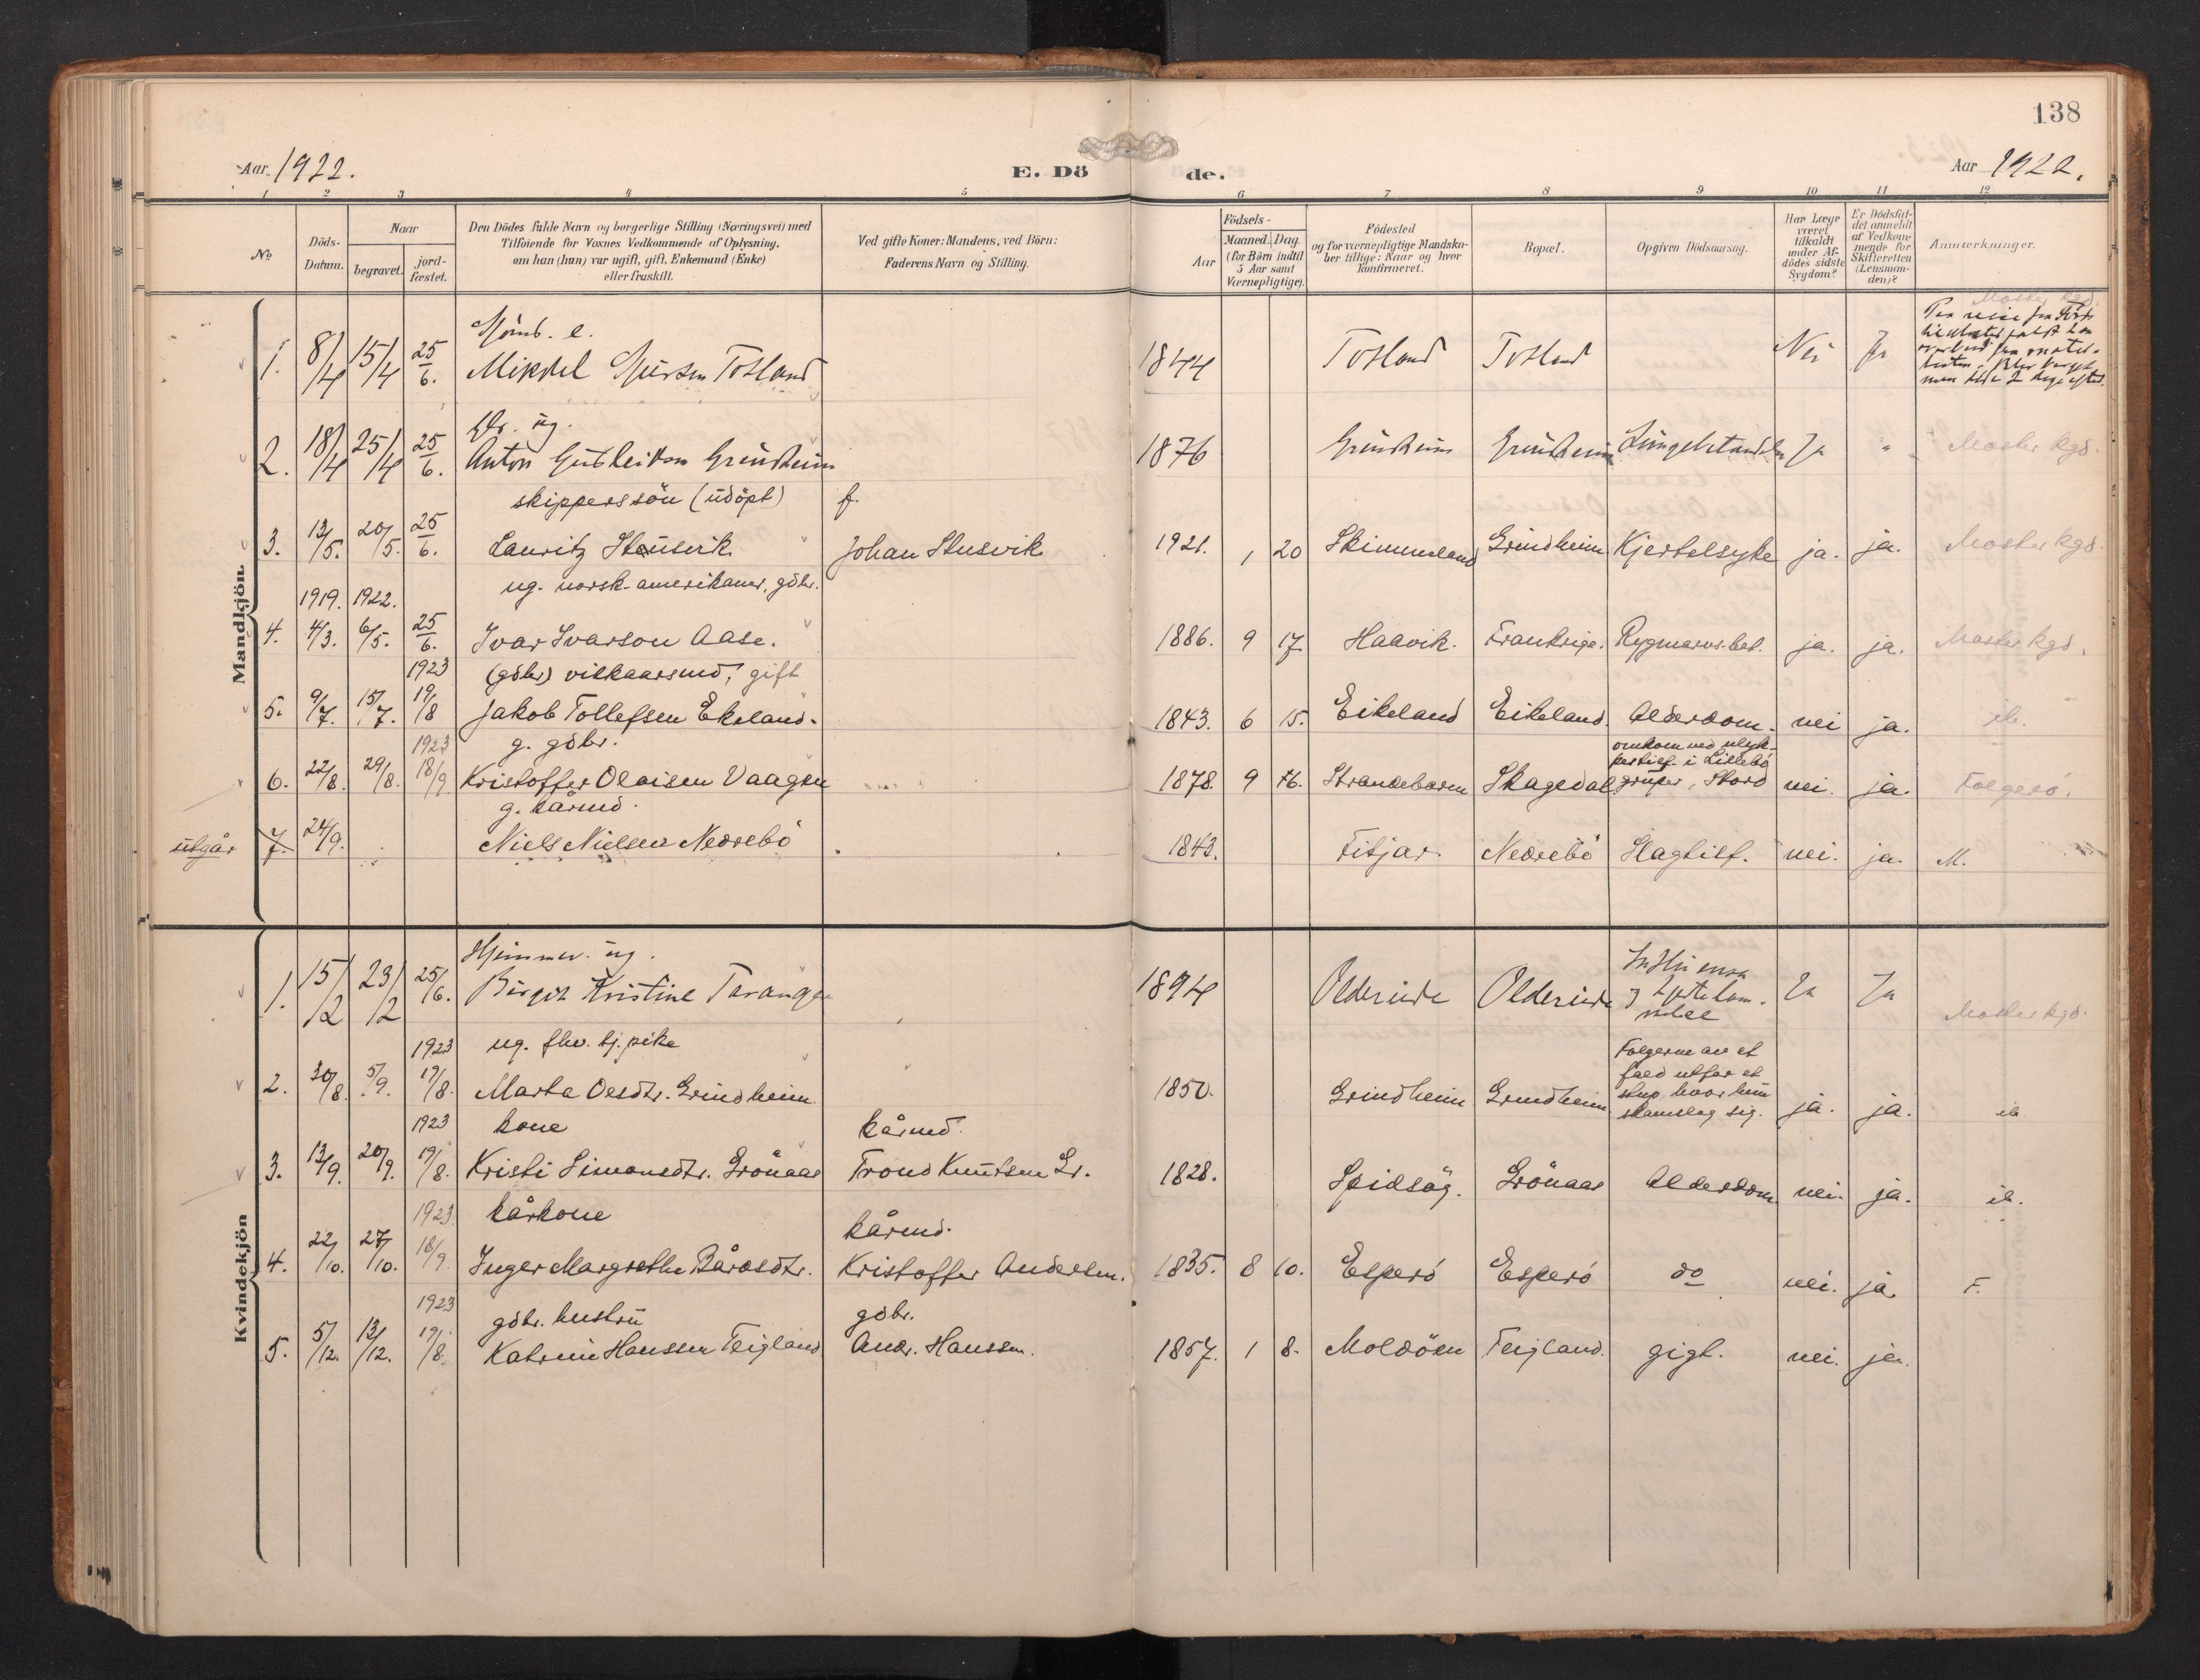 138
Aar 1922.
E. Döde.
Aar 1922.
1 2 3 4 5 6 7 8 9 10 11 12
No
Döds-Datum.
Naar
begravet.
jord-fæstet.
Den Dödes fulde Navn og borgerlige Stilling (Næringsvei) med
Tilföiende for Voxnes Vedkommende af Oplysning,
om han (hun) var ugift, gift, Enkemand (Enke)
eller fraskilt.
Ved gifte Koner: Mandens, ved Börn:
Faderens Navn og Stilling.
Födsels-
Aar
Maaned. Dag.
(for Börn indtil
5 Aar samt
Værnepligtige).
Födested
og for værnepligtige Mandska-
ber tillige: Naar og hvor
konfirmeret.
Bopæl.
Opgiven Dödsaarsag.
Har Læge
været
tilkaldt
under Af-
dödes sidste
Sygdom?
Er Dödsfal-
det anmeldt
af Vedkom-
mende for
Skifteretten
(Lensman-
den)?
Anmærkninger.
Mandkjön.
e.
1. 8/4 15/4 25/6. Totland 1844 Totland Totland Nei Ja
ug.
2. 18/4 25/4 25/6. Anton Grindheim 1876 Grindheim Grindheim Ja " Moster kgd.
skipperssön (udöpt) f.
3. 13/5. 20/5. 25/6. Lauritz Johan Stusvik 1921. 1 20 Skimmeland Grindheim Kjertelsyke ja. ja. Moster kgd.
ug. norsk-amerikaner, gdbr.
1919. 1922.
4. 4/3. 6/5. 25/6. Ivar Ivarson Aase. 1886. 9 17. Haavik. Frankrige. Rygmarvs.bet. ja. ja. Moster kgd.
1923 (gdbr) vilkaarsmd, gift
5. 9/7. 15/7. 19/8 Jakob Tollefsen Ekeland. 1843. 6 15. Eikeland Eikeland. Alderdom. nei ja. ib.
1923 g. gdbr.
omkom ved ulyk-
i Lillebö
6. 22/8. 29/8. 18/9 Kristoffer Olaisen Vaagen 1878. 9 16. Strandebarm Skagedal gruber, Stord nei. ja.
g. kårmd.
utgår 7. 24/9. Niels Nielsen Nedrebö 1843. Fitjar. Nedrebö Slagtilf. nei. ja. M.
Kvindekjön
ug.
1. 15/2 23/2 25/6. Kristine Taranger 1894 Ja Ja Moster kgd.
1923 ug. fhv. tj.pike
Følgerne av et
fald utfor et
stup hvor hun
skamslog sig.
2. 30/8. 5/9. 19/8. Marta Oesdtr. Grindheim 1850. Grindheim Grindheim ja. ja. ib
1923 kone kårmd.
3. 13/9. 20/9. 19/8. Kristi Simonsdtr. Grönaas Trond Knutsen Gr. 1828. Spidsög. Grönaas Alderdom nei. ja. ib.
1923 kårkone kårmd.
4. 22/10. 27/10. 18/9. Inger Margrethe Bårdsdtr. Kristoffer Andersen. 1835. 8 10. Esperö Esperö do nei. ja. F.
1923 gdbr. hustru gdbr.
5. 5/12. 13/12. 19/8. Katrine Hanssen Teigland Andr. Hanssen. 1857. 1 8. Moldöen Teigland. gigt. nei. ja.